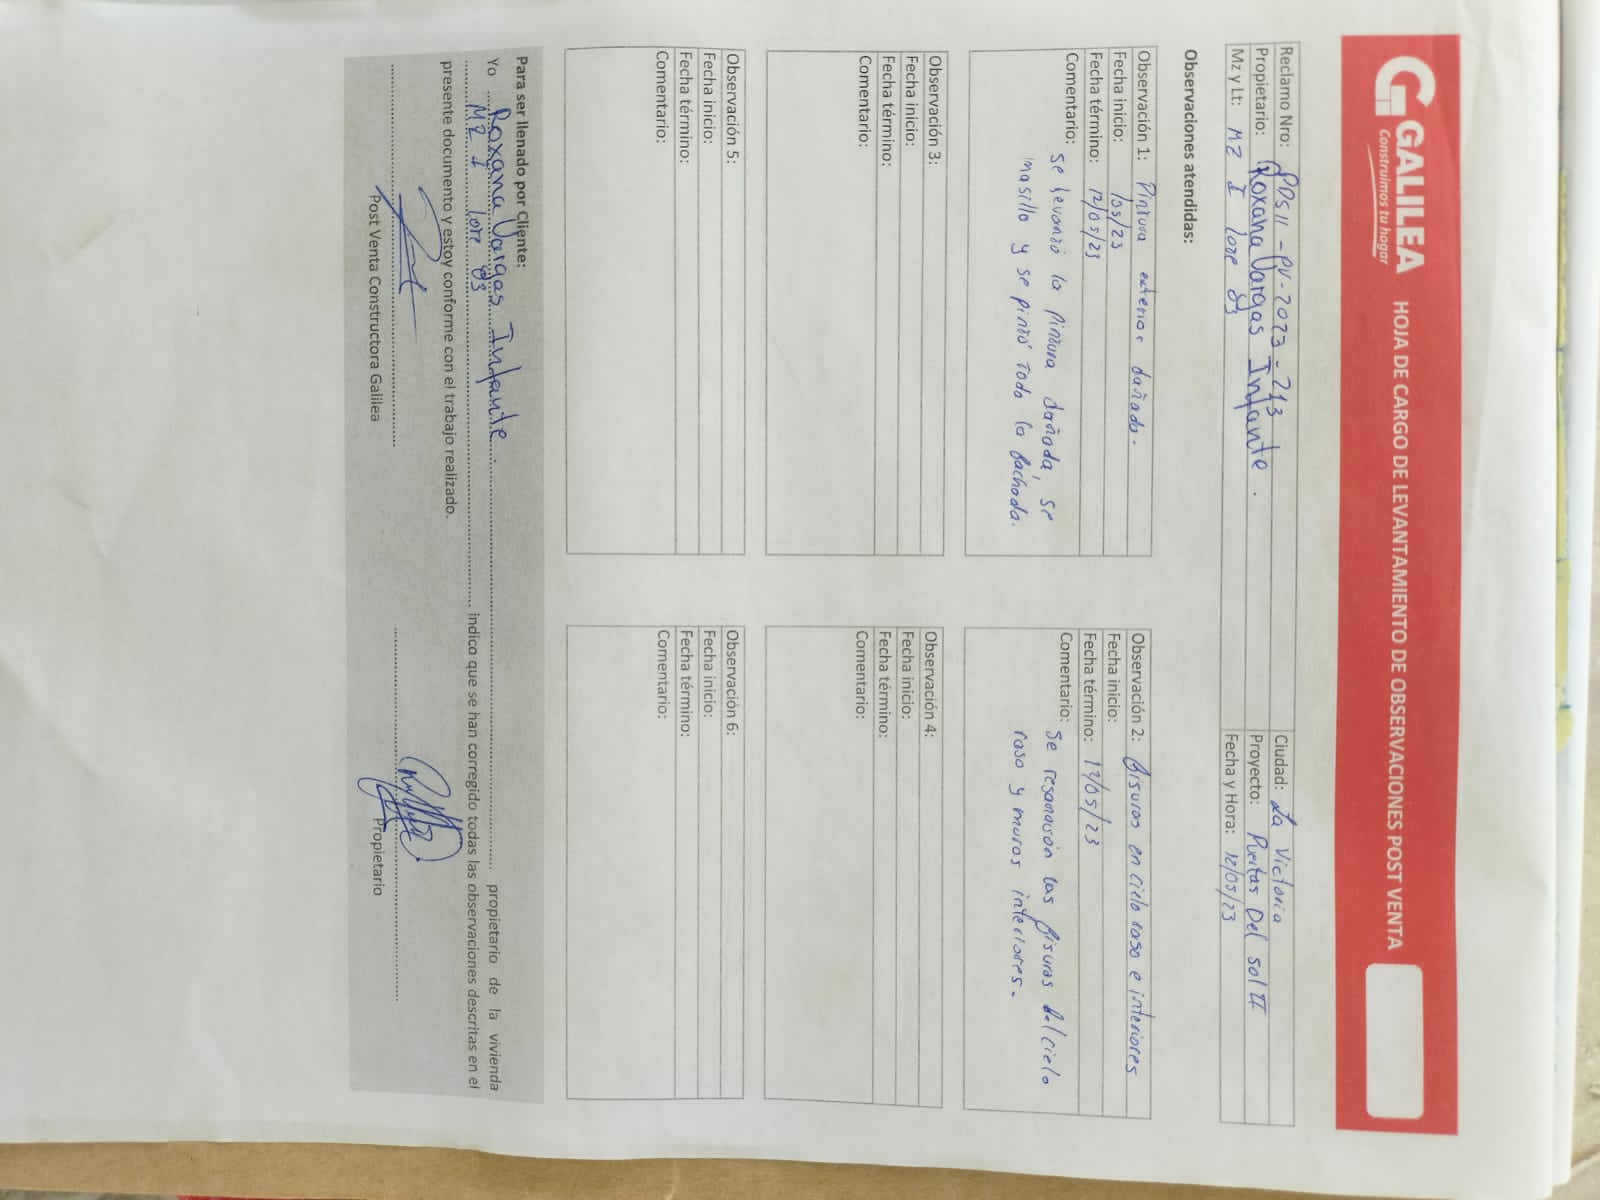 GALILEA
Construimos tu hogar
HOJA DE CARGO DE LEVANTAMIENTO DE OBSERVACIONES POST VENTA
Reclamo Nro: PDSII - PV - 2023 - 213
Ciudad: La Victoria
Propietario: Roxana Vargas Infante.
Proyecto: Puertas Del Sol II
Mz y Lt: MZ I lote 03
Fecha y Hora: 12/05/23
Observaciones atendidas:
Observación 1: Pintura exterior dañado.
Fecha inicio: /05/23
Fecha término: 12/05/23
Comentario:
se levantó la pintura dañada, se
masillo y se pintó todo la fachada.
Observación 2: fisuras en cielo raso e interiores
Fecha inicio:
Fecha término: 12/05/23
Comentario: Se resanación las fisuras del cielo
raso y muros interiores.
Observación 3:
Fecha inicio:
Fecha término:
Comentario:
Observación 4:
Fecha inicio:
Fecha término:
Comentario:
Observación 5:
Fecha inicio:
Fecha término:
Comentario:
Observación 6:
Fecha inicio:
Fecha término:
Comentario:
Para ser llenado por Cliente:
Yo Roxana Vargas Infante. propietario de la vivienda
MZ I lote 03 indico que se han corregido todas las observaciones descritas en el
presente documento y estoy conforme con el trabajo realizado.
Post Venta Constructora Galilea
Propietario